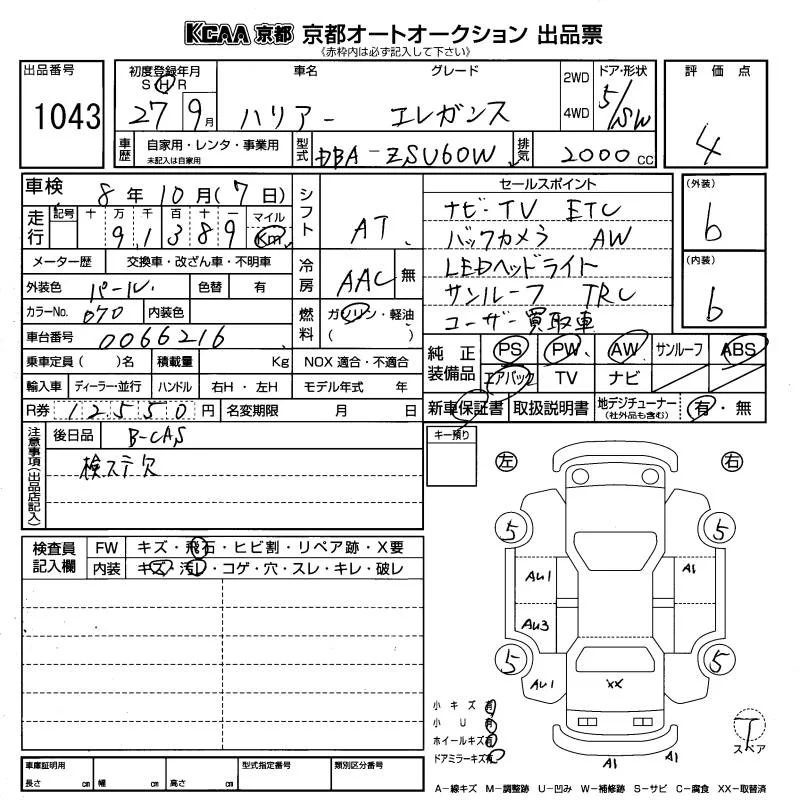 KCAA 京都 京都オートオークション 出品票
《赤枠内は必ず記入して下さい》
出品番号
1043
初度登録年月
S H R
27 9月
車名 グレード
ハリアー エレガンス
2WD
4WD
ドア・形状
5/SW
評価点
4
車歴
自家用・レンタ・事業用
未記入は自家用
型式
DBA-ZSU60W
排気
2000 CC
車検 8年10月(7日)
走行
記号 十 万 千 百 十 一 マイル
9 1 3 8 9 Km
シフト
AT
冷房
AAC 無
メーター歴 交換車・改ざん車・不明車
外装色 パール 色替 有
カラーNo. 070 内装色
燃料
ガソリン・軽油
( )
車台番号 0066216
乗車定員( )名 積載量 Kg NOX 適合・不適合
輸入車 ディーラー・並行 ハンドル 右H・左H モデル年式 年
R券 12550円 名変期限 月 日
セールスポイント
ナビ・TV ETC
バックカメラ AW
LEDヘッドライト
サンルーフ TRC
ユーザー買取車
(外装)
6
(内装)
6
純正装備品
PS PW AW サンルーフ ABS
エアバック TV ナビ
新車保証書 取扱説明書 地デジチューナー
(社外品も含む)
有・無
注意事項(出品店記入)
後日品 B-CAS
検ステ欠
キー預り
検査員記入欄
FW キズ・飛石・ヒビ割・リペア跡・X要
内装 キズ・汚レ・コゲ・穴・スレ・キレ・破レ
左 右
5 5
AU1 A1
AU3
5 5
AU1 XX
小キズ 有
小U 有
ホイールキズ 有
ドアミラーキズ 有
A1 A1
T
スペア
車庫証明用
長さ cm 幅 cm 高さ cm
型式指定番号 類別区分番号
A-線キズ M-調整跡 U-凹み W-補修跡 S-サビ C-腐食 XX-取替済